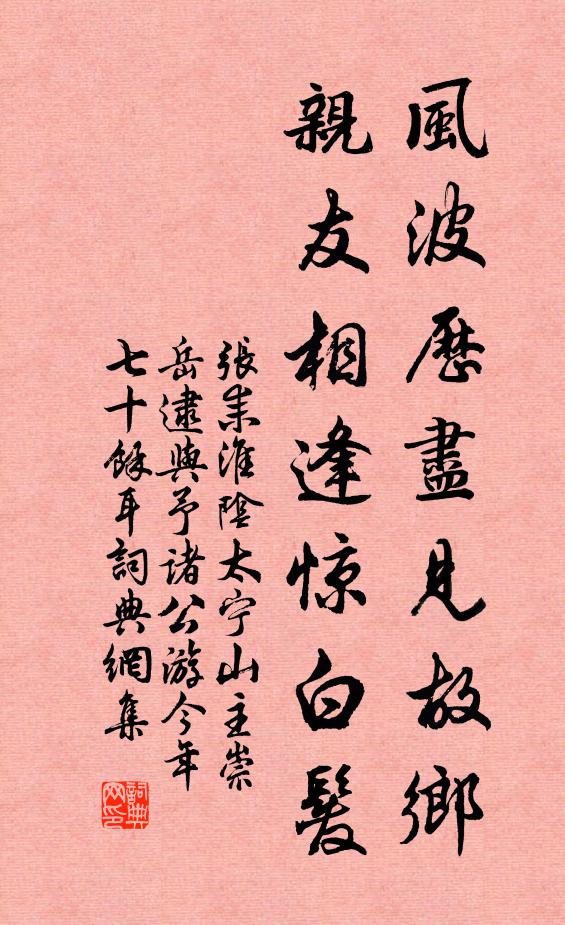 風波歷盡見故鄉
親友相逢惊白髮
張耒淮陰太宁山主崇
岳逮與予諸公游今年
七十餘耳詞典網集
詞典
网印